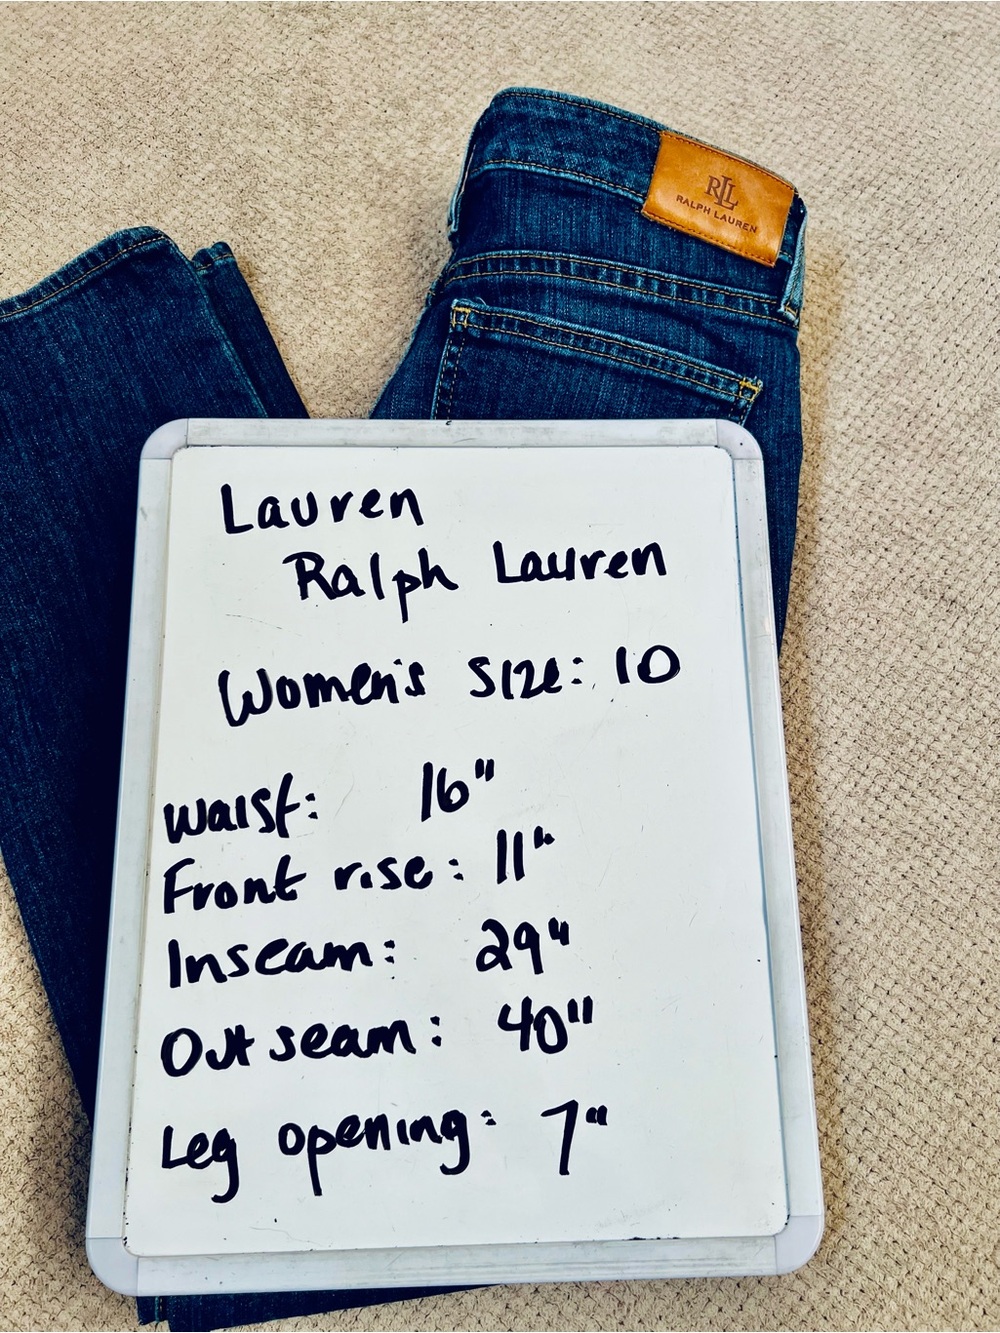 RLL
RALPH LAUREN
Lauren
Ralph Lauren
Women's size: 10
Waist: 16"
Front rise: 11"
Inseam: 29"
Outseam: 40"
Leg opening: 7"